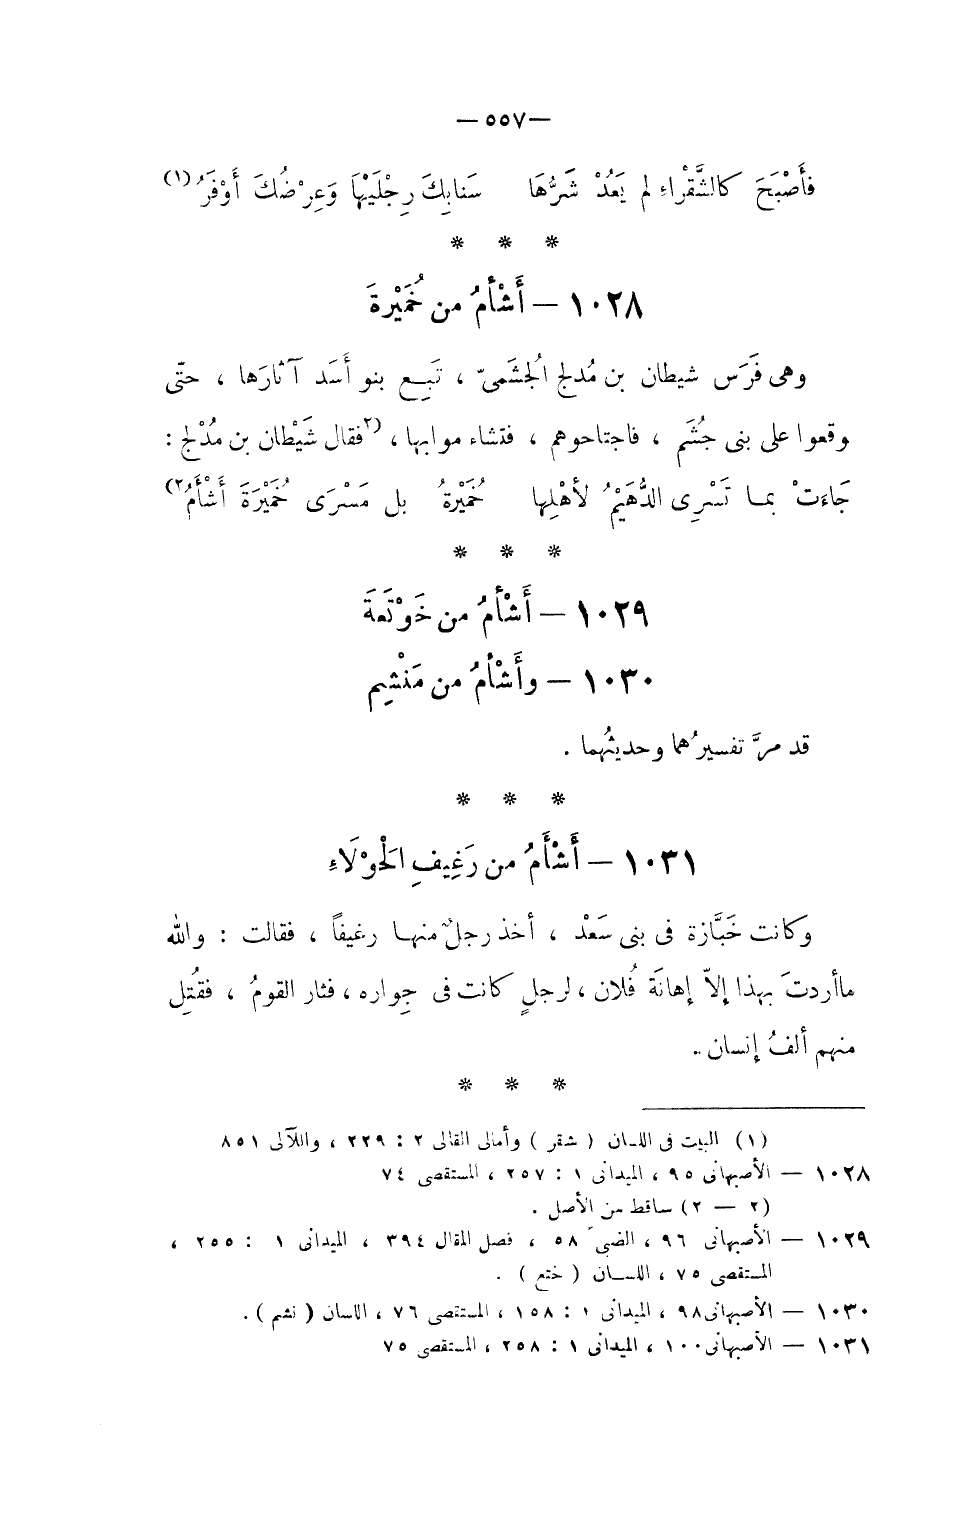 — ٥٥٧ —
فأَصْبَحَ كالشَّقْراءِ لم يَعْدُ شَرُّها سَنابِكَ رِجْلَيْها وَعِرْضُكَ أَوْفَرُ (١)
* * *
١٠٢٨ — أَشْأَمُ من خُمَيْرةَ
وهى فَرَس شيطان بن مُدلج الجُشَمىّ ، تَبِـع بنو أَسَد آثارَها ، حتّى
وقعوا على بنى جُشَم ، فاجتاحوهم ، فتشاءموا بها ، (٢فقال شَيْطان بن مُدْلج :
جَاءَتْ بمـا تَسْرِى الدُّهَيْمُ لأهْلِها خُمَيْرةُ بل مَسْرَى خُمَيْرَةَ أَشْأَمُ ٢)
* * *
١٠٢٩ — أَشْأَمُ من خَوْتَعَةَ
١٠٣٠ — وأَشْأَمُ من مَنْشِم
قد مرَّ تفسيرُهما وحديثُهما .
* * *
١٠٣١ — أَشْأَمُ من رَغِيفِ الحَوْلَاءِ
وكانت خَبَّازة فى بنى سَعْد ، أخذ رجلٌ منهـا رغيفاً ، فقالت : والله
ماأردتَ بهذا إلاّ إهانَة فُلان ، لرجلٍ كانت فى جِواره ، فثار القومُ ، فقُتِل
منهم ألفُ إنسان .
* * *
(١) البيت فى اللسان ( شقر ) وأمالى القالى ٢ : ٢٢٩ ، واللآلى ٨٥١
١٠٢٨ — الأصبهانى ٩٥ ، الميدانى ١ : ٢٥٧ ، المستقصى ٧٤
(٢ — ٢) ساقط من الأصل .
١٠٢٩ — الأصبهانى ٩٦ ، الضبى ٥٨ ، فصل المقال ٣٩٤ ، الميدانى ١ : ٢٥٥ ،
المستقصى ٧٥ ، اللسـان ( ختع ) .
١٠٣٠ — الأصبهانى ٩٨ ، الميدانى ١ : ١٥٨ ، المستقصى ٧٦ ، اللسان ( نشم ) .
١٠٣١ — الأصبهانى ١٠٠ ، الميدانى ١ : ٢٥٨ ، المستقصى ٧٥